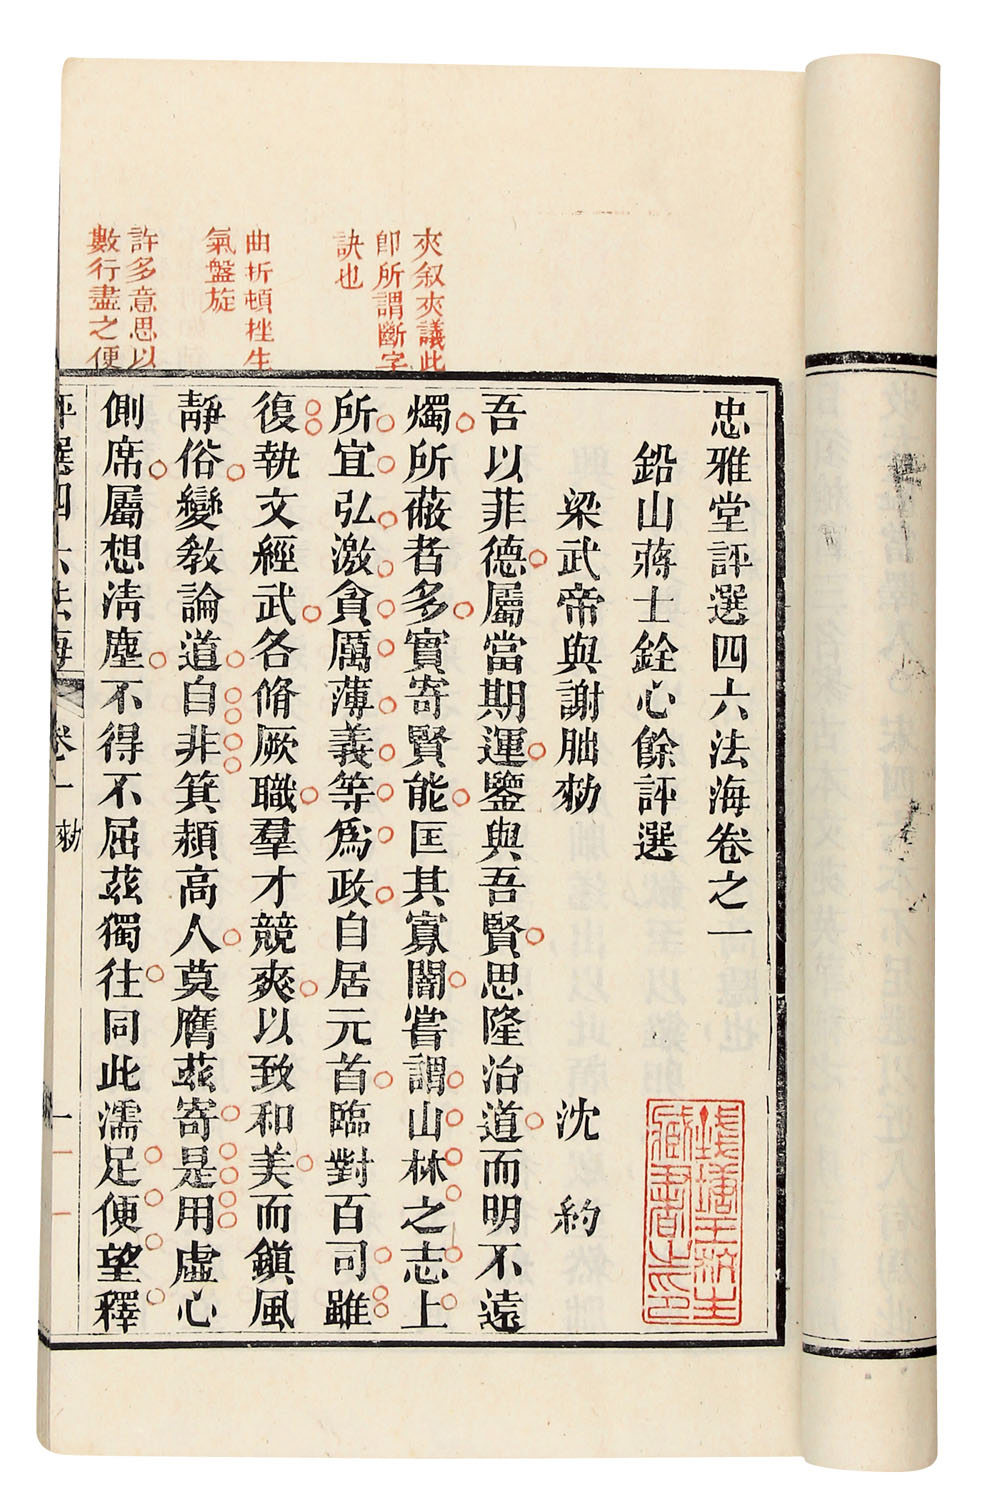 夾叙夾議此
卽所謂斷字
訣也
曲折頓挫生
氣盤旋
許多意思以
數行盡之便
忠雅堂評選四六法海卷之一
鉛山蔣士銓心餘評選
梁武帝與謝朏勑
沈約
吾以菲德屬當期運鑒與吾賢思隆治道而明不遠
燭所蔽者多實寄賢能匡其寡闇嘗謂山林之志上
所宜弘激貪厲薄義等爲政自居元首臨對百司雖
復執文經武各脩厥職羣才競爽以致和美而鎭風
靜俗變敎論道自非箕潁高人莫膺茲寄是用虛心
側席屬想淸塵不得不屈茲獨往同此濡足便望釋
評選四六法海
卷一
勑
一